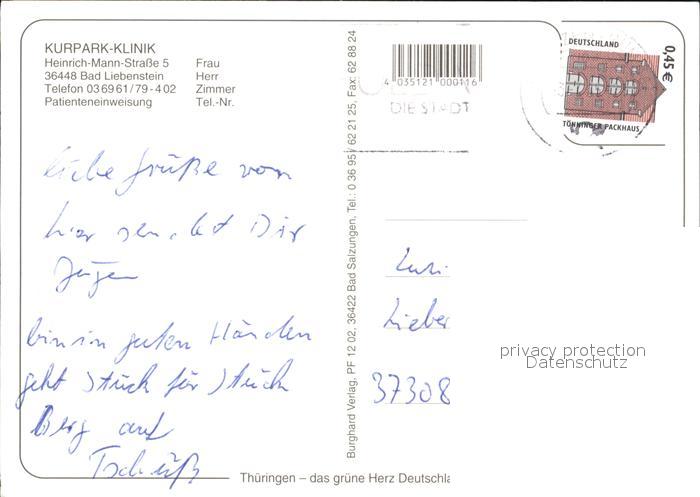 KURPARK-KLINIK
Heinrich-Mann-Straße 5 Frau
36448 Bad Liebenstein Herr
Telefon 03 69 61 / 79 - 4 02 Zimmer
Patienteneinweisung Tel.-Nr.
liebe Grüße von
hier sendet Dir
Jürgen
bin in guten Händen
geht Stück für Stück
Berg auf
Tschüß
Burghard Verlag, PF 12 02, 36422 Bad Salzungen, Tel.: 0 36 95 / 62 21 25, Fax: 62 88 24
4 035121 000116
DIE STADT
DEUTSCHLAND
0,45 €
TÖNNINGER PACKHAUS
Lieber
37308
privacy protection
Datenschutz
Thüringen – das grüne Herz Deutschla